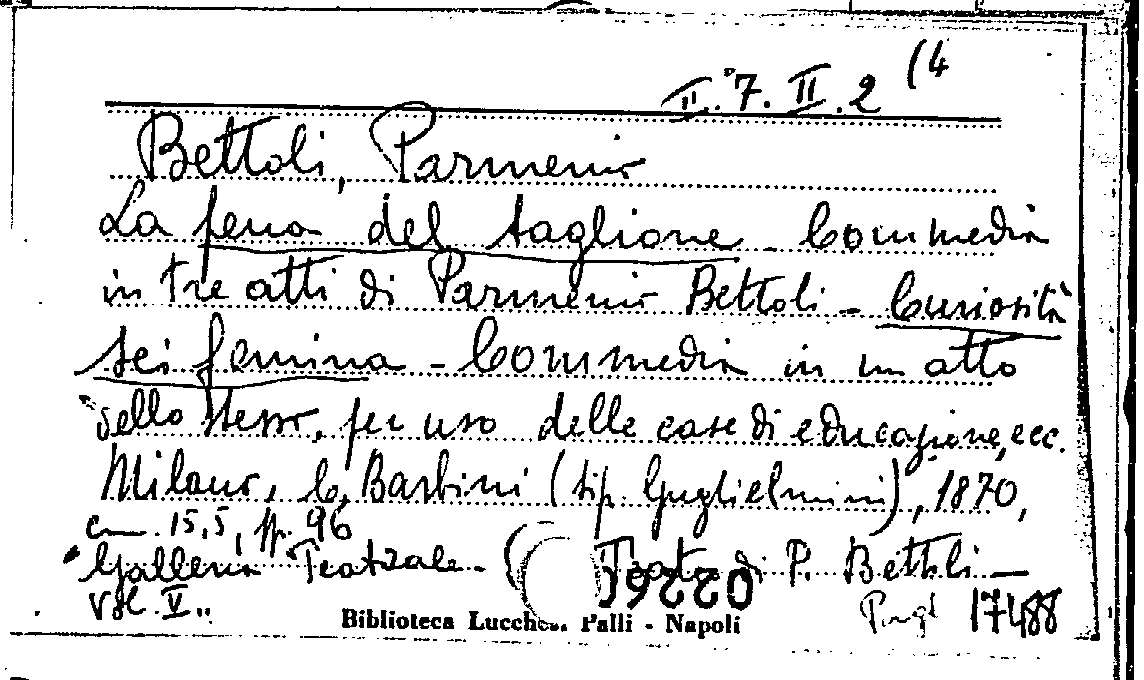 II. 7. II. 2 (4
Bettoli, Parmenio
La pena del taglione - Commedia
in tre atti di Parmenio Bettoli - Curiosità
sei femina - Commedia in un atto
dello stesso, per uso delle case di educazione, ecc.
Milano, C. Barbini (tip. Guglielmini), 1870,
cm. 15,5, pp. 96
Galleria Teatrale - (Teatro di P. Bettoli -
Vol. V..
Biblioteca Lucchesi Palli - Napoli
17488